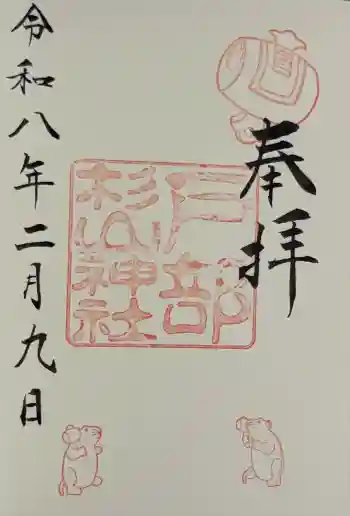 奉拝
戸部
杉山神社
令和八年二月九日